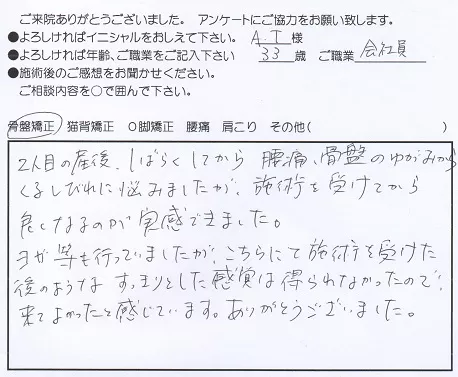 ご来院ありがとうございました。 アンケートにご協力をお願い致します。
●よろしければイニシャルをおしえて下さい。 A.T 様
●よろしければ年齢、ご職業をご記入下さい 33 歳 ご職業 会社員
●施術後のご感想をお聞かせください。
ご相談内容を○で囲んで下さい。
骨盤矯正 猫背矯正 O脚矯正 腰痛 肩こり その他( )
2人目の産後、しばらくしてから 腰痛、骨盤のゆがみから
くるしびれに悩みましたが、施術を受けてから
良くなるのが実感できました。
ヨガ等も行っていましたが、こちらにて施術を受けた
後のような すっきりとした感覚は得られなかったので、
来てよかったと感じています。ありがとうございました。